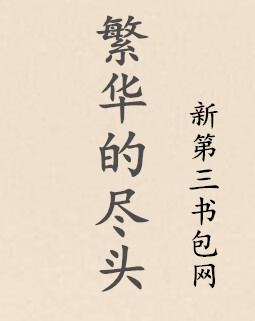 繁华的尽头
新第三书包网